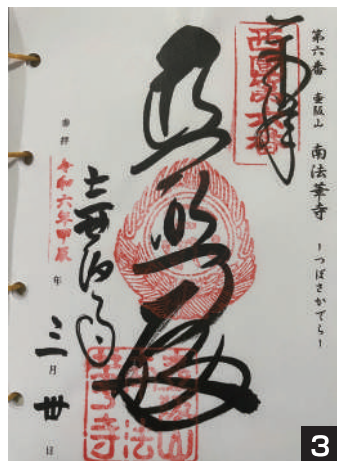 第六番 壷阪山 南法華寺 ーつぼさかでらー
奉拝
西国第六番
普照殿
参拝 令和六年甲辰 年 三月 卅日
3